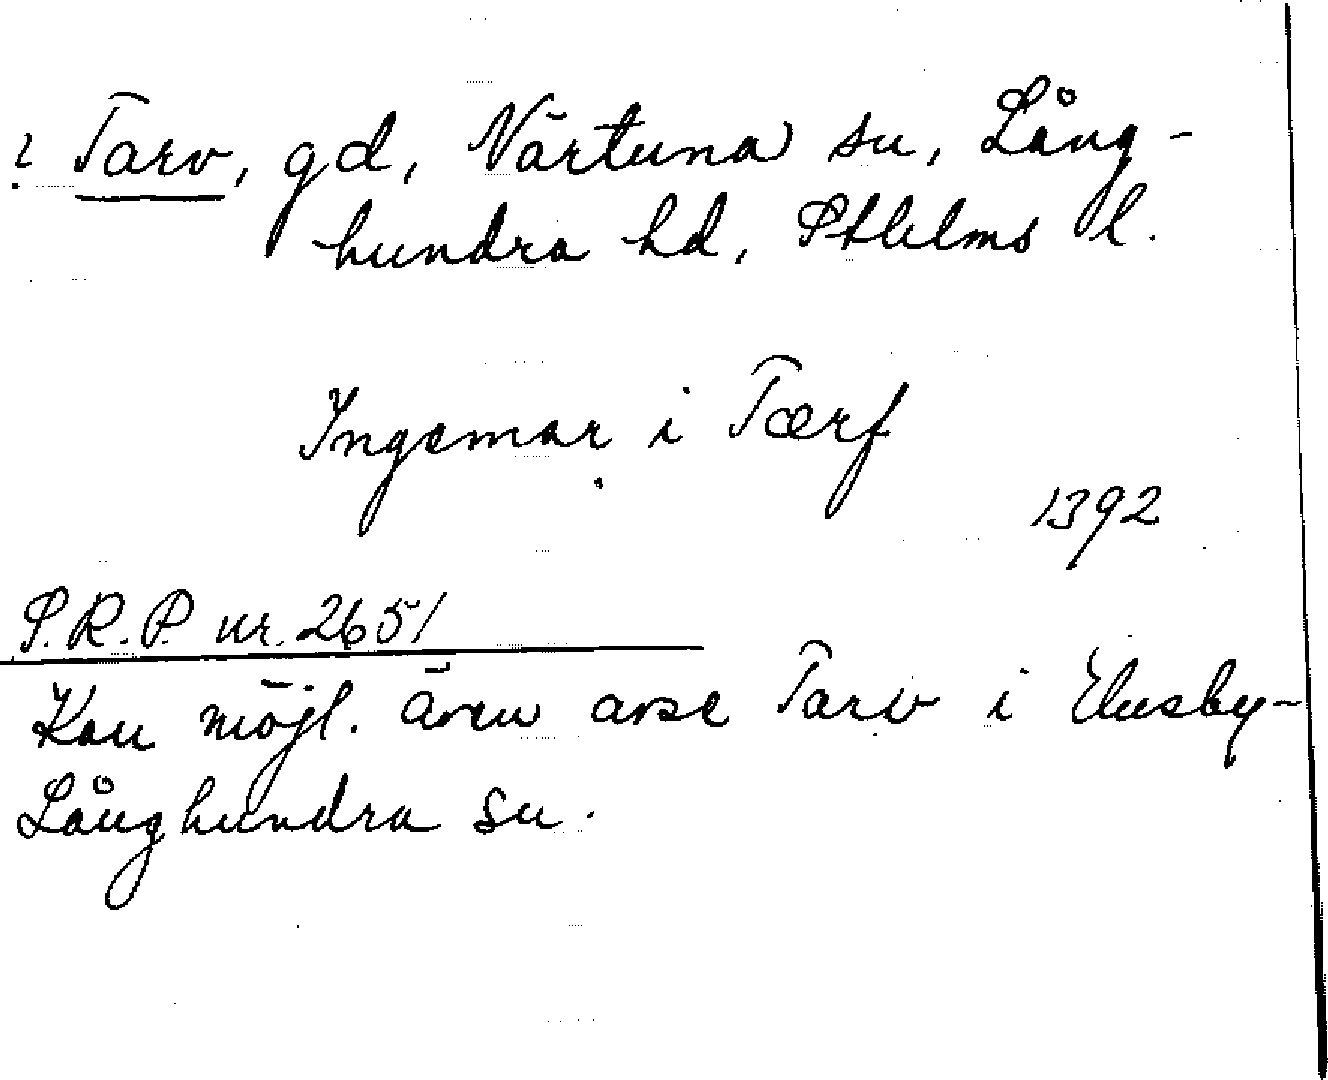 ? Tarv, gd, Närtuna sn, Lång-
hundra hd, Sthlms l.
Ingemar i Tærf
1392
S.R.P. nr. 2651
Kan möjl. även avse Tarv i Husby-
Långhundra sn.